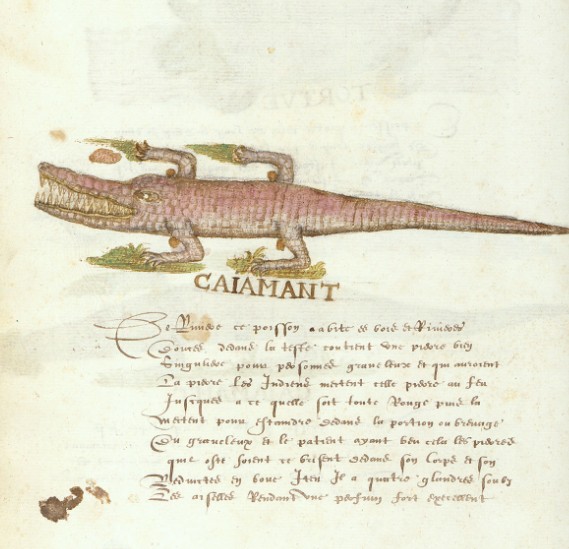 CAIAMANT
Se ce poisson abite es bors des Rivieres
Doulces dedand la teste contient une pierre bien
Singuliere pour personnes graveleux et qui auroient
La pierre Les Indiens mettent celle pierre au feu
Jusques a ce quelle soit toute Rouge puis la
mettent pour estaindre dedand la portion ou breuage
Du graveleux et le patient ayant beu cela les pierres
que soient ce brisent dedand son Corps et son
en boue Iten Il a quatre glandres soubz
Les aiselles Rendant une perfum fort excellent